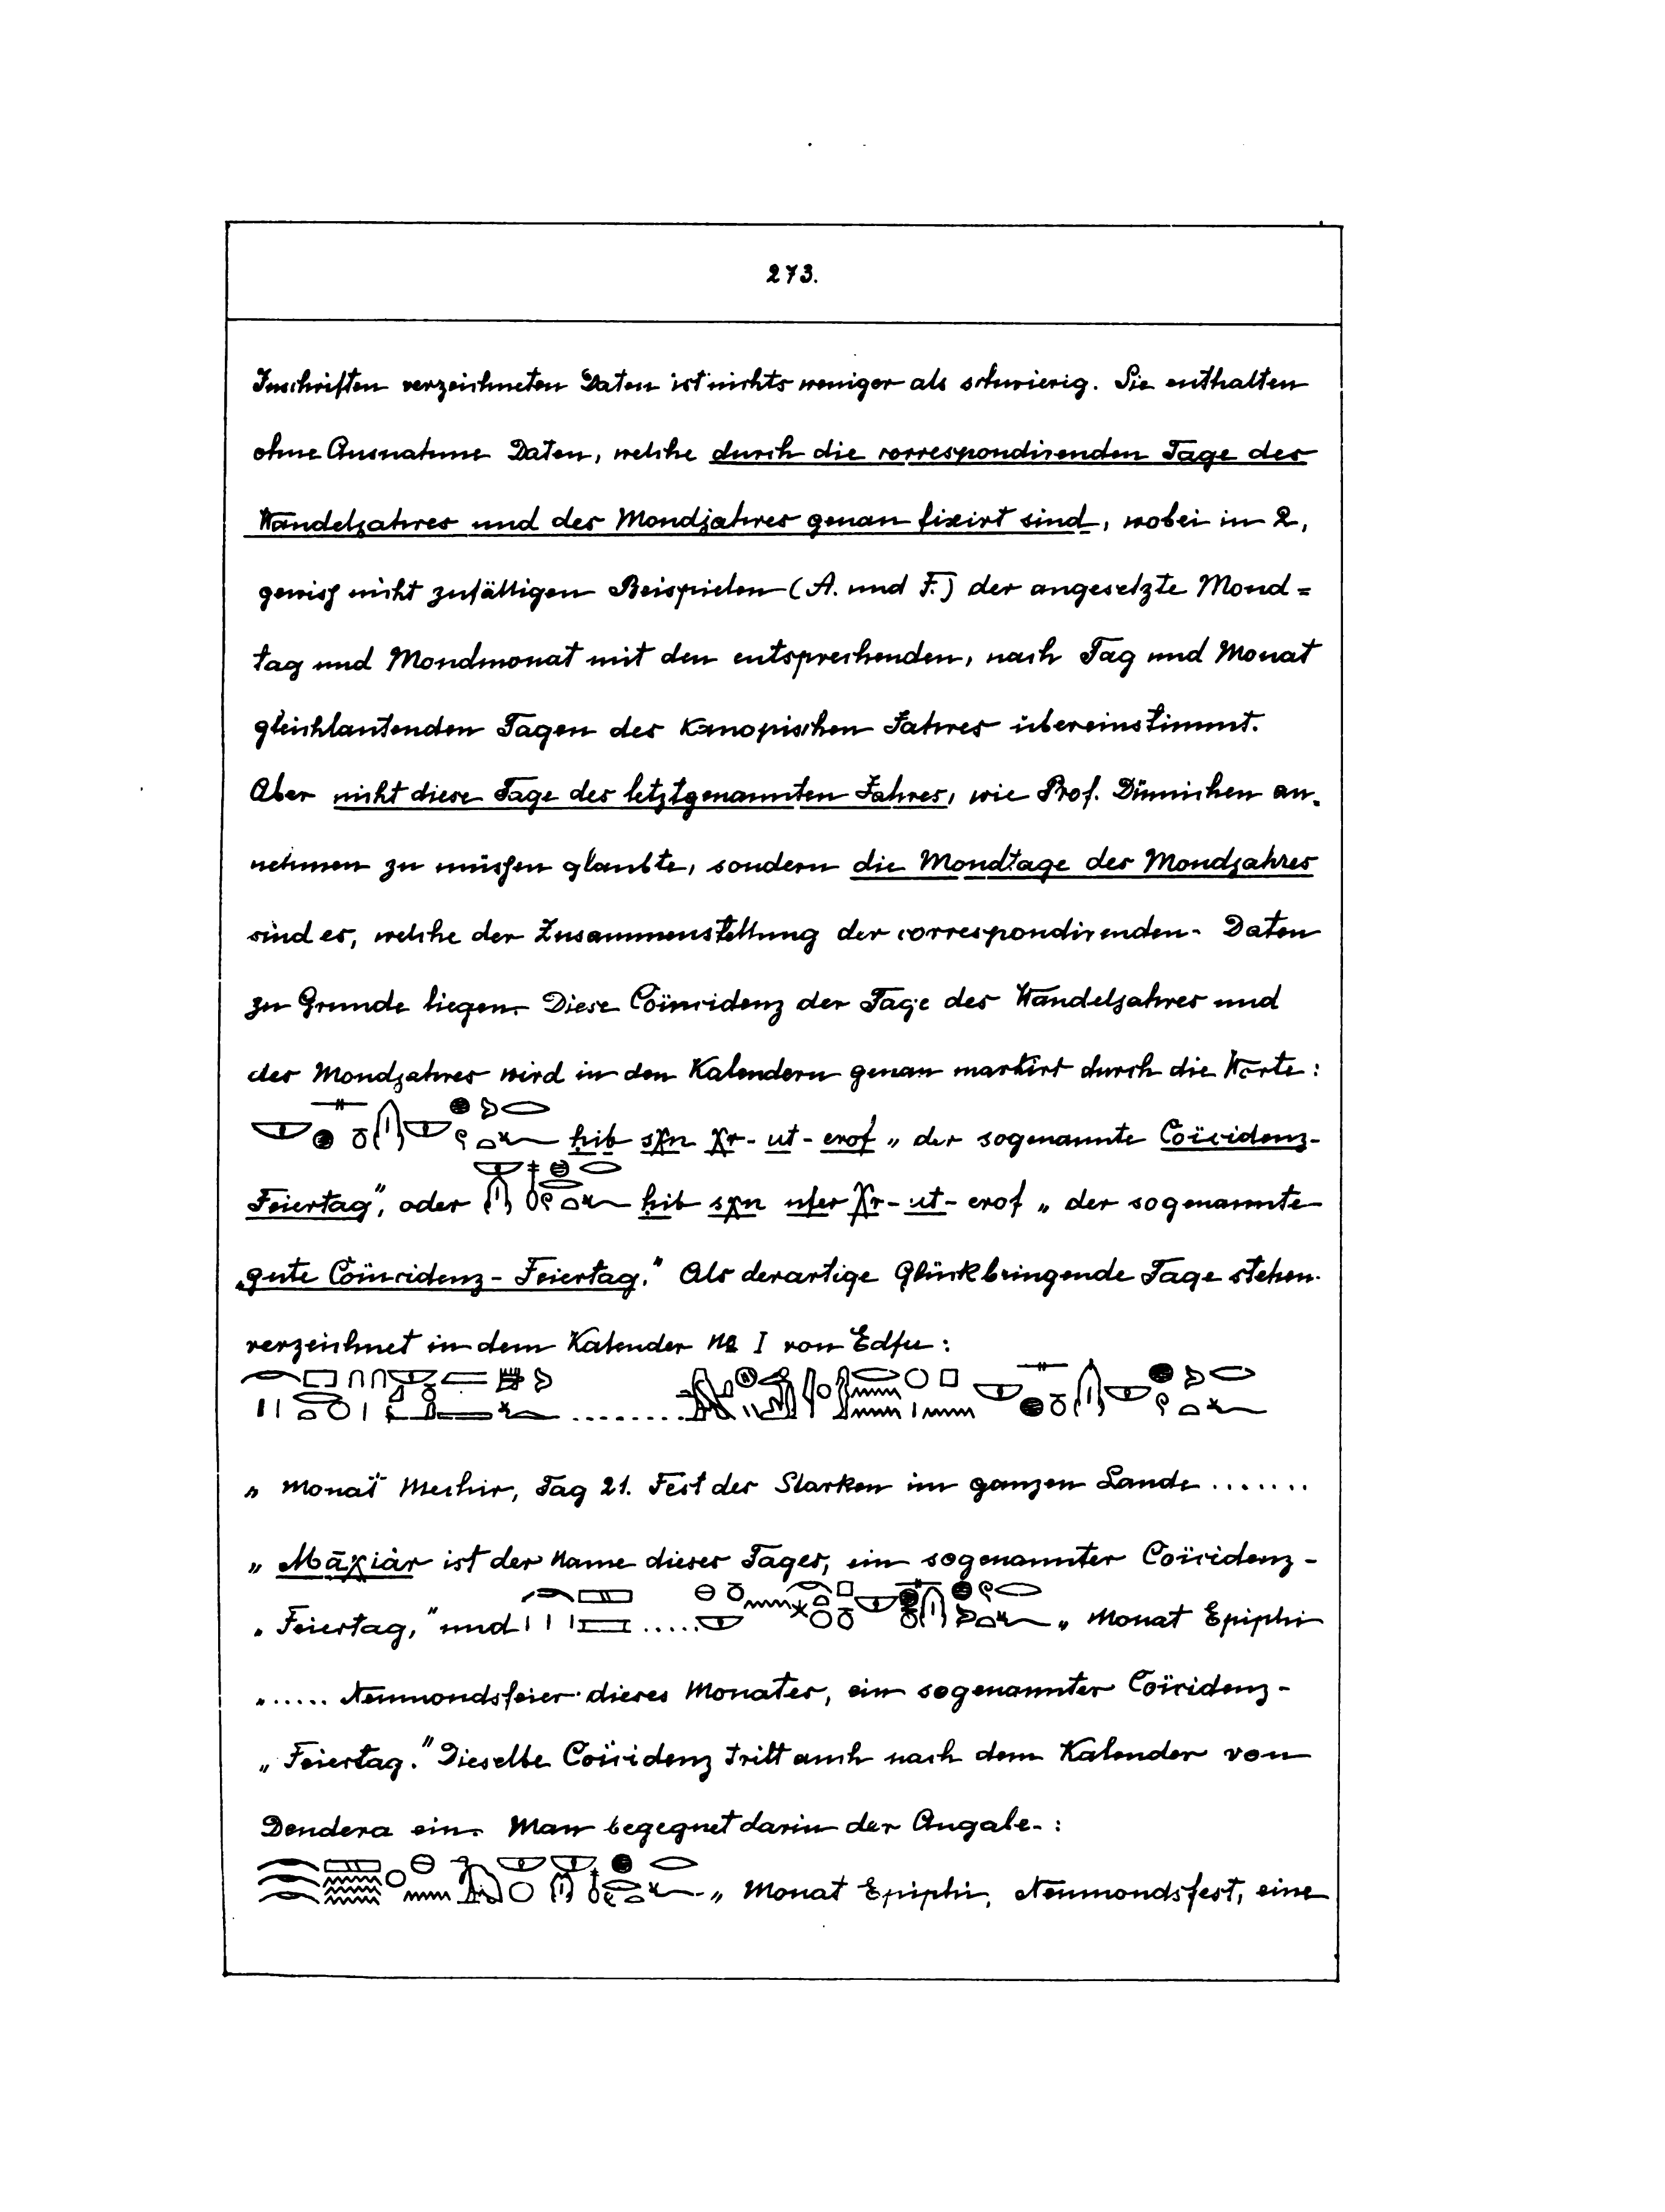 273.
Inschriften verzeichneten Daten ist nichts weniger als schwierig. Sie enthalten
ohne Ausnahme Daten, welche durch die correspondirenden Tage des
Wandeljahres und des Mondjahres genau fixirt sind, wobei in 2,
gewiß nicht zufälligen Beispielen (A. und F.) der angesetzte Mond=
tag und Mondmonat mit den entsprechenden, nach Tag und Monat
gleichlautenden Tagen des Kanopischen Jahres übereinstimmt.
Aber nicht diese Tage des letztgenannten Jahres, wie Prof. Dümichen an-
nehmen zu müßen glaubte, sondern die Mondtage des Mondjahres
sind es, welche der Zusammenstellung der correspondirenden Daten
zu Grunde liegen. Diese Coïncidenz der Tage des Wandeljahres und
des Mondjahres wird in den Kalendern genau markirt durch die Worte:
ḥib sχn χr-ut-erof „der sogenannte Coïcidenz-
Feiertag", oder ḥib sχn nfer χr-ut-erof „der sogenannte
„gute Coïncidenz-Feiertag." Als derartige Glückbringende Tage stehen
verzeichnet in dem Kalender № I von Edfu:
„Monat Mechir, Tag 21. Fest des Starken im ganzen Lande .......
„Māχiàr ist der Name dieses Tages, ein sogenannter Coïcidenz-
„Feiertag," und ..... „Monat Epiphi
„..... Neumondsfeier dieses Monates, ein sogenannter Coïcidenz-
„Feiertag." Dieselbe Coïcidenz tritt auch nach dem Kalender von
Dendera ein. Man begegnet darin der Angabe:
„Monat Epiphi, Neumondsfest, eine